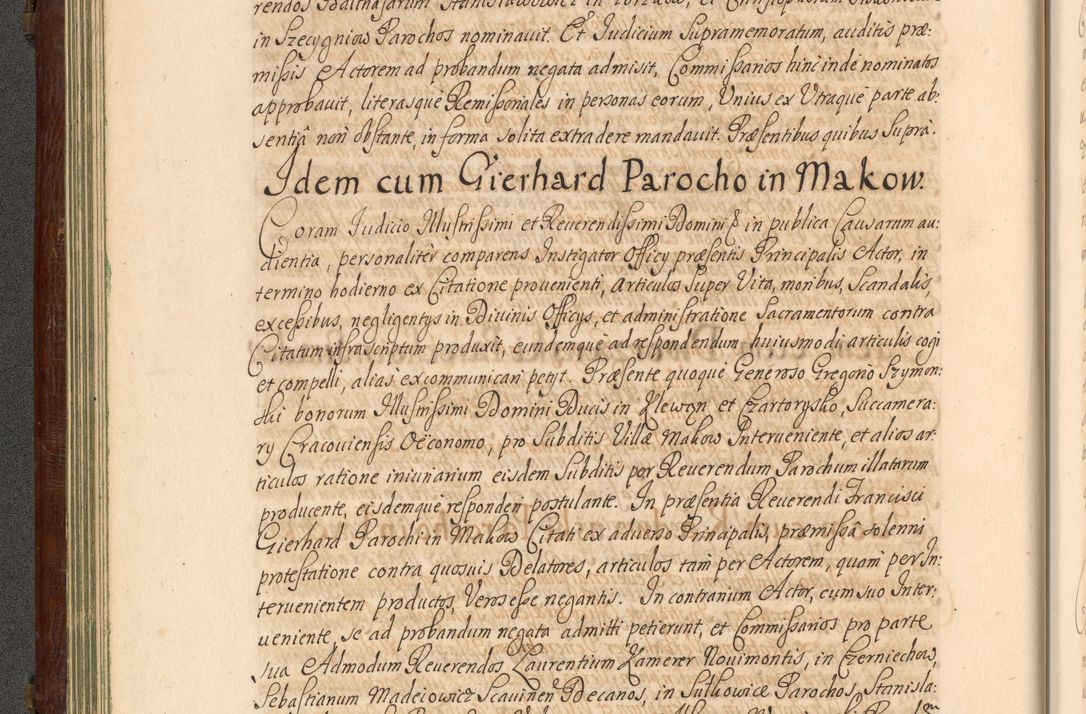 rendos Balthasarum Stanisławowicz in
in Szecygniow Parochos nominauit. Et Iudicium Supramemoratum, auditis præ:
mißis Actorem ad probandum negata admisit, Commißarios hinc inde nominatos
approbauit, literasque Remißoriales in personas eorum, Unius ex Utraque parte ab:
sentiâ non obstante, in forma solita extradere mandauit. Præsentibus quibus Suprà.
Idem cum Gierhard Parocho in Makow.
Coram Iudicio Illustrißimi et Reuerendißimi Domini in publica Causarum au:
dientia, personalitèr comparens Instigator Officy præsentis Principalis Actor, in
termino hodierno ex Citatione prouenienti, Articulos Super Vita, moribus, Scandalis,
exceßibus, negligentys in Diuinis Officys, et administratione Sacramentorum contra
Citatum infrascriptum produxit, eundemque ad respondendum huiusmodi articulis cogi
et compelli, aliàs excommunicari petyt. Præsente quoque Generoso Gregorio Szymon:
ski bonorum Illustrißimi Domini Ducis in Klewan et Czartorysko, Succamera:
ry Cracouiensis Oëconomo, pro Subditis Villæ Makow Interueniente, et alios ar:
ticulos ratione iniuriarum eisdem Subditis per Reuerendum Parochum illatarum
producente, eisdemque responderi postulante. In præsentia Reuerendi Francisci
Gierhard Parochi in Makow Citati ex aduerso Principalis, præmißâ solenni
protestatione contra quosuis Delatores, articulos tàm per Actorem, quàm per In:
teruenientem productos, Veros eße negantis. In contrarium Actor, cum suo Inter:
ueniente, se ad probandum negata admitti petierunt, et Commißarios pro parte
sua Admodum Reuerendos Laurentium Kamerer Nouimontis, in Czerniechow,
Sebastianum Madeiowicz Scauinen Decanos, in Sulkowice Parochos, Stanisla: